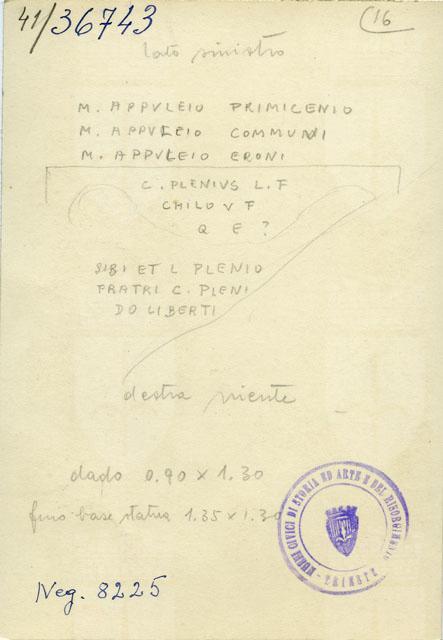 41/36743
16
lato sinistro
M. APPVLEIO PRIMIGENIO
M. APPVLEIO COMMUNI
M. APPVLEIO ERONI
C. PLENIVS L. F
CHILO V F
Q E ?
SIBI ET L PLENIO
FRATRI C. PLENI
DO LIBERTI
destra niente
dado 0.90 x 1.30
fino base statua 1.35 x 1.30
MUSEI CIVICI DI STORIA ED ARTE E DEL RISORGIMENTO
- TRIESTE -
Neg. 8225